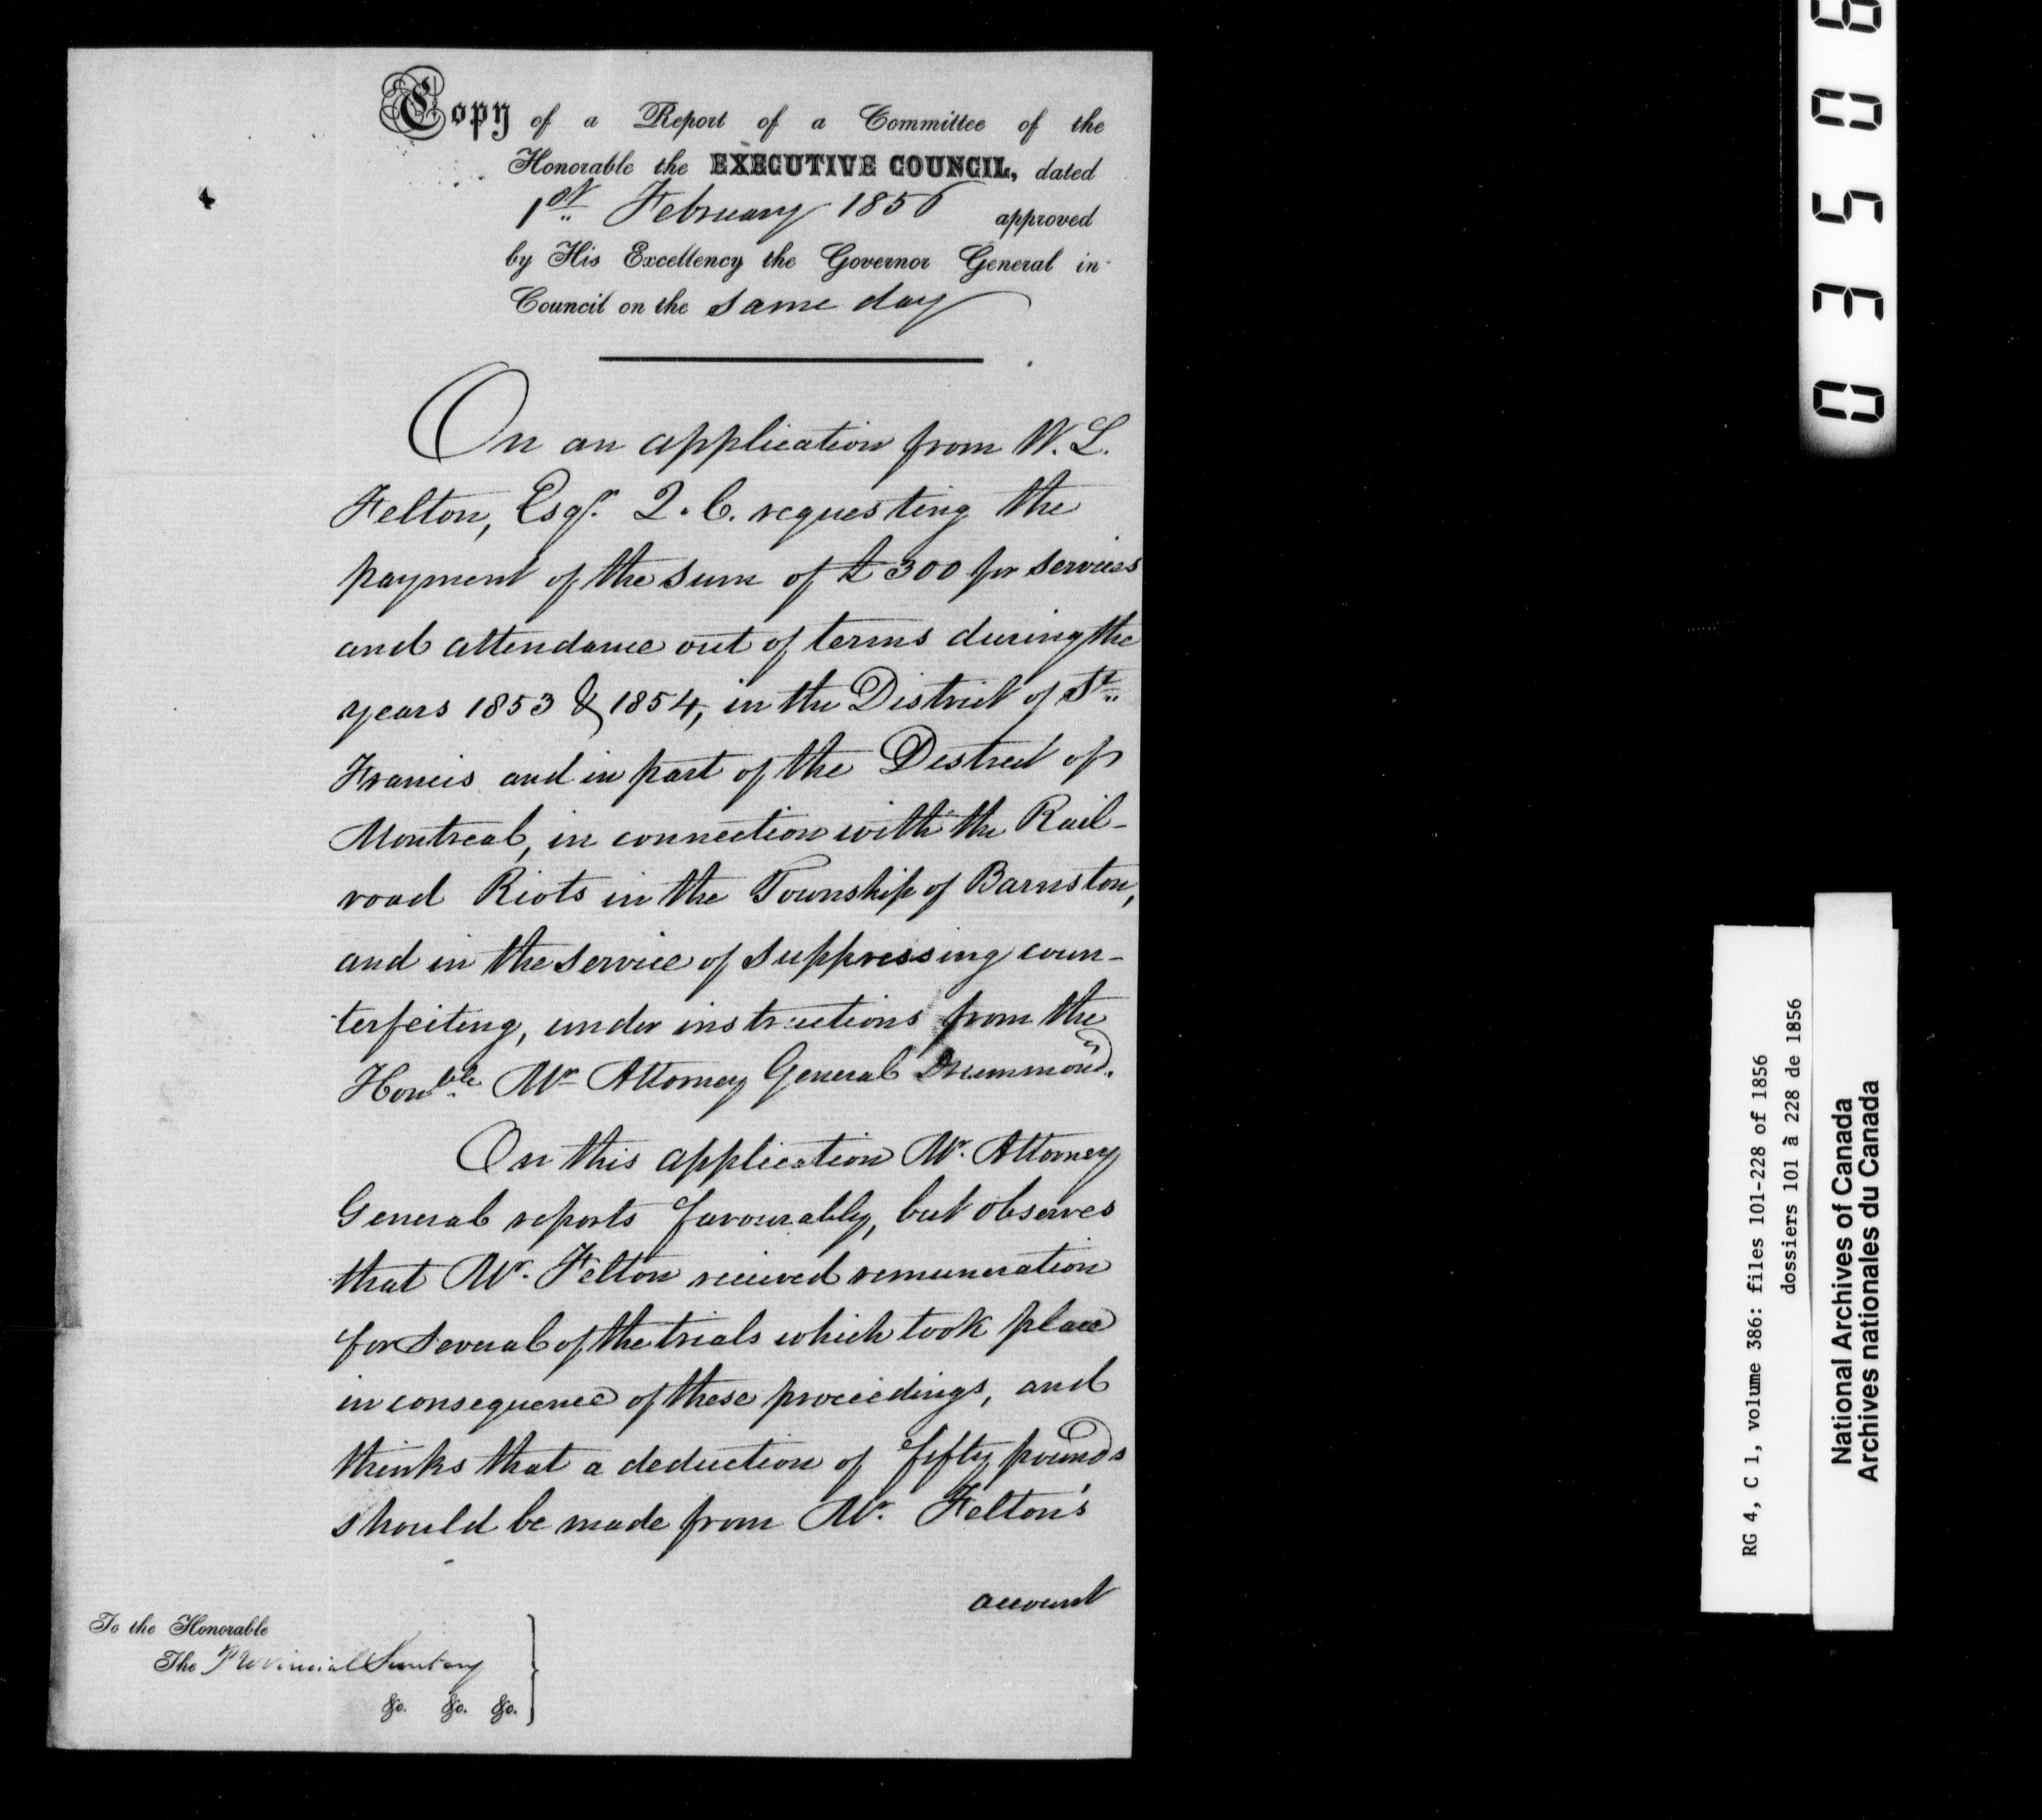 Copy of a Report of a Committee of the
Honorable the EXECUTIVE COUNCIL, dated
1st February 1856 approved
by His Excellency the Governor General in
Council on the same day
On an application from W. L.
Felton, Esqr. Q.C. requesting the
payment of the sum of £300 for services
and attendance out of terms during the
years 1853 & 1854, in the District of St.
Francis and in part of the District of
Montreal, in connection with the Rail-
road Riots in the Township of Barnston,
and in the service of suppressing coun-
terfeiting, under instructions from the
Honble. Mr Attorney General Drummond.
On this application Mr. Attorney
General reports favourably, but observes
that Mr. Felton received remuneration
for several of the trials which took place
in consequence of these proceedings, and
thinks that a deduction of fifty pounds
should be made from Mr. Felton's
account
To the Honorable
The Provincial Secretary
&c. &c. &c.
0350
RG 4, C 1, volume 386: files 101-228 of 1856
dossiers 101 à 228 de 1856
National Archives of Canada
Archives nationales du Canada